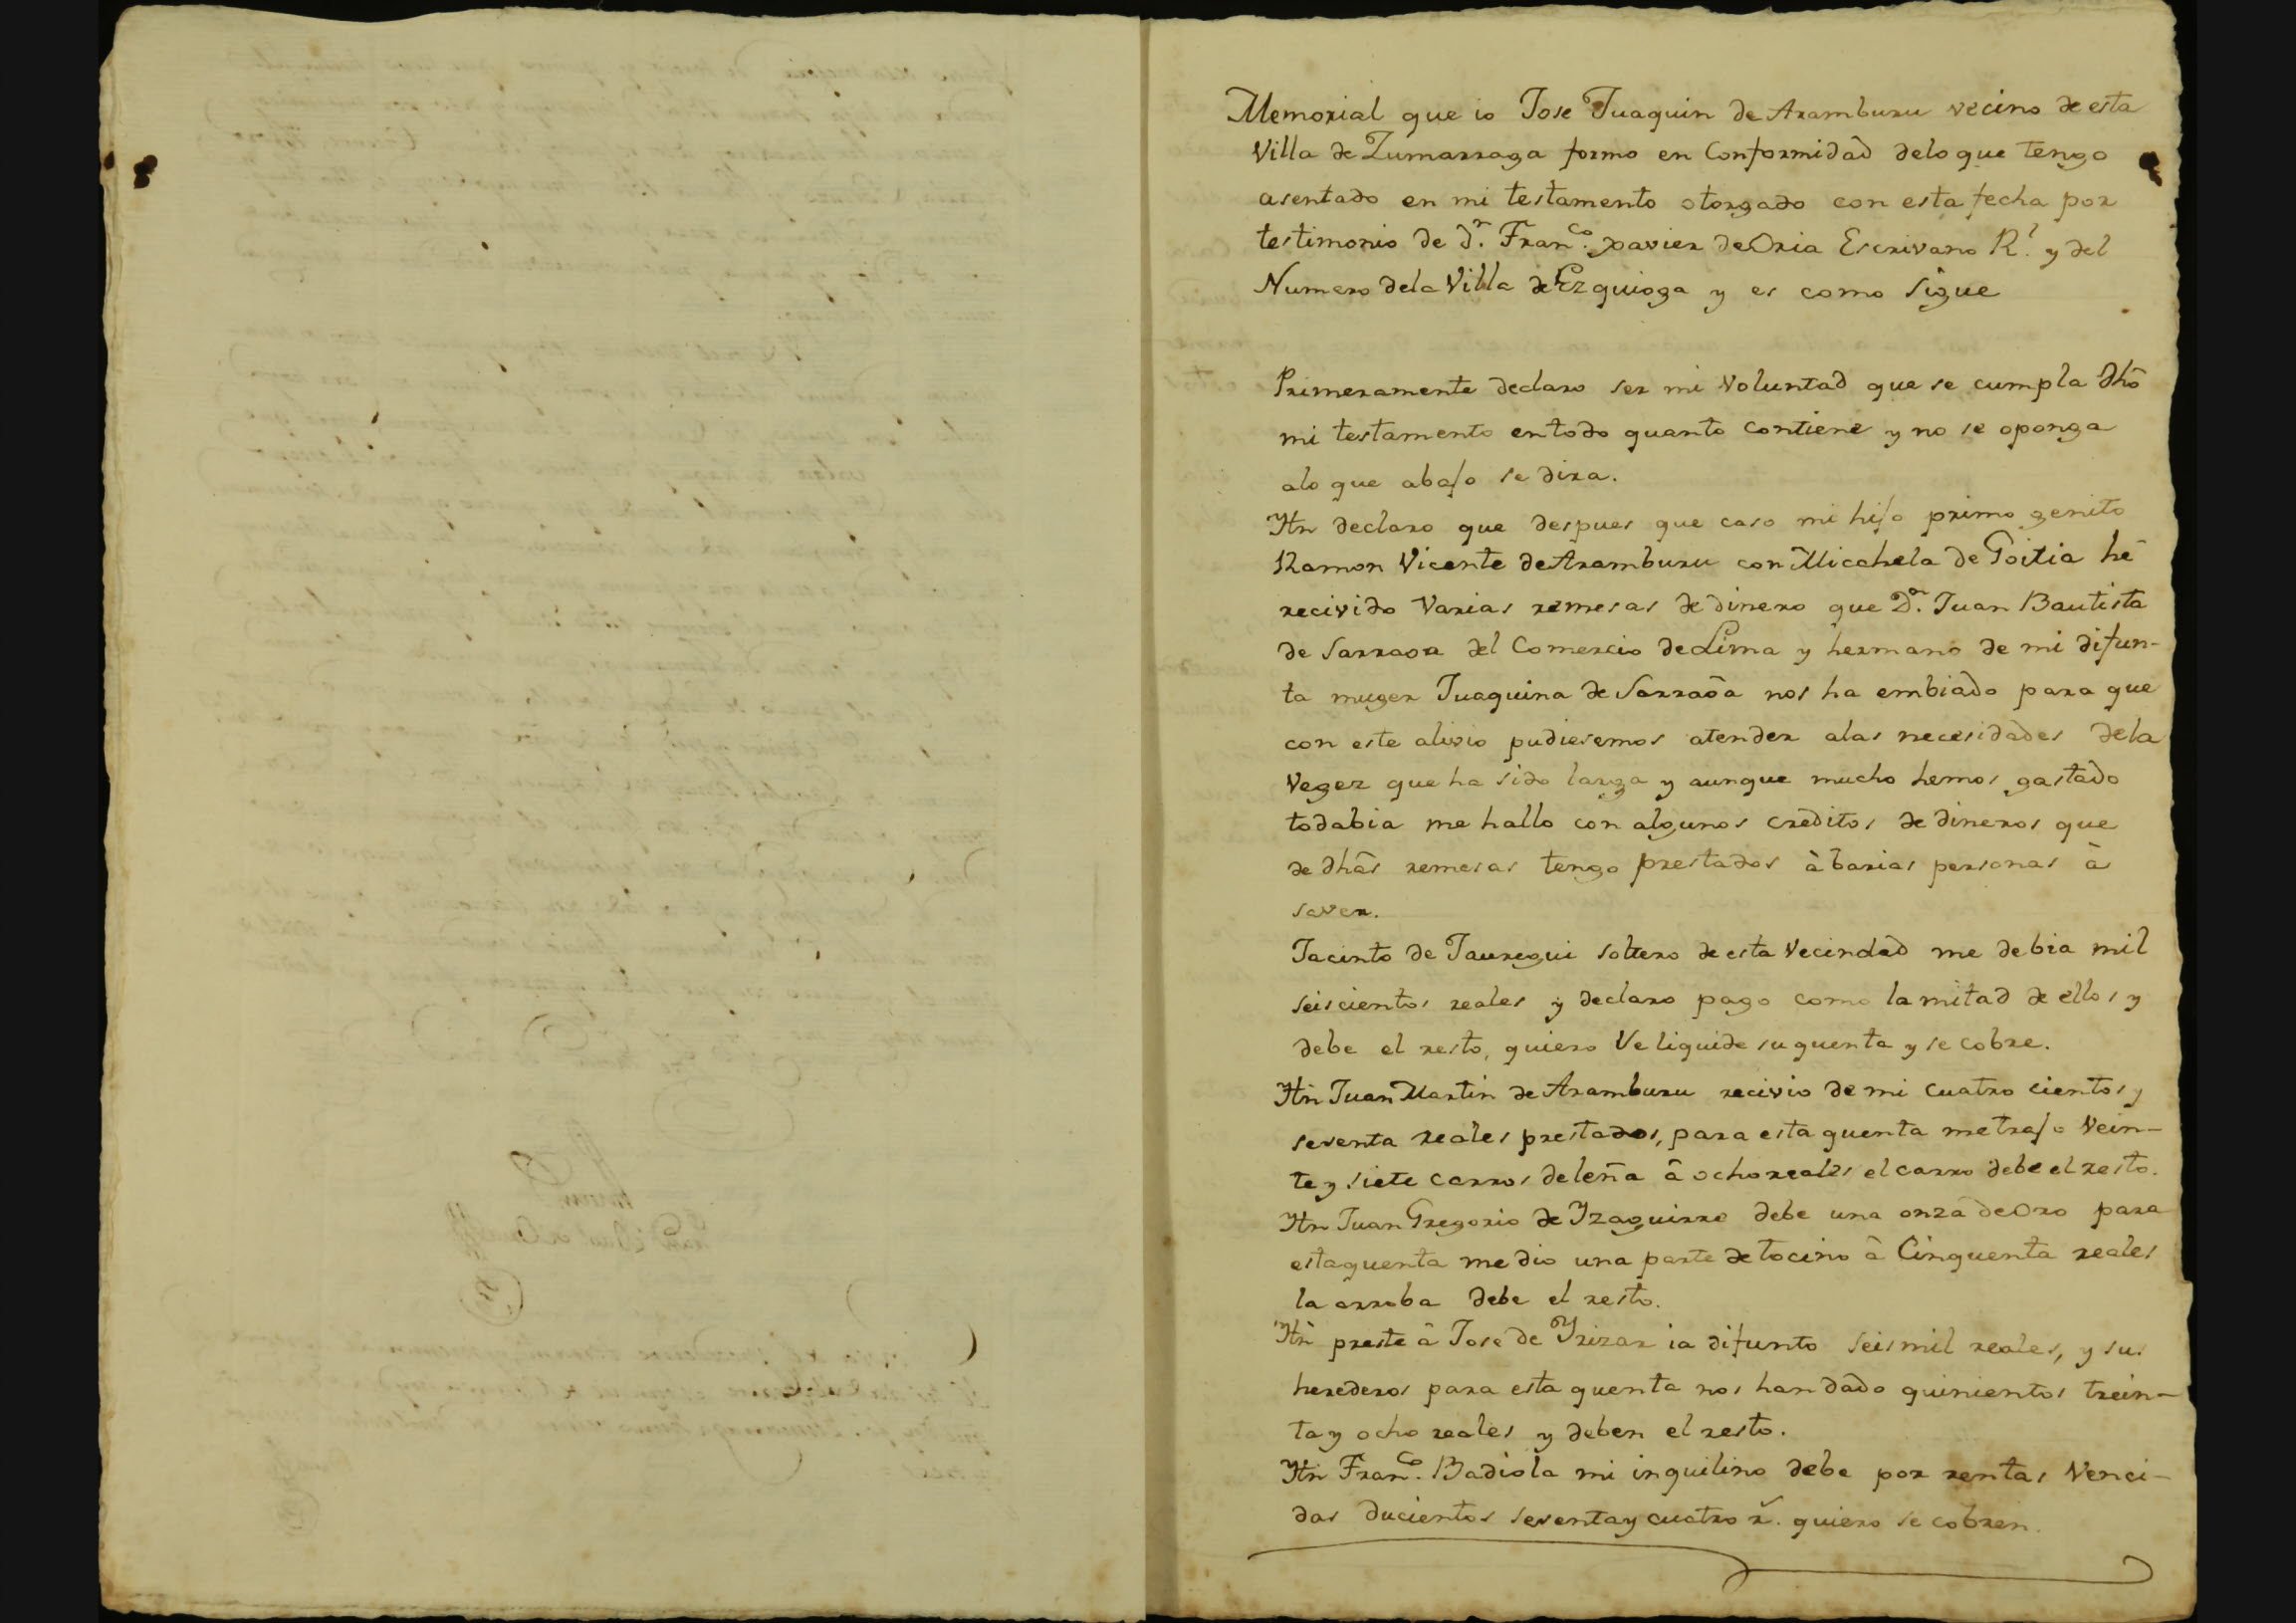 Memorial que io Jose Juaquin de Aramburu vecino de esta
Villa de Zumarraga formo en Conformidad delo que tengo
asentado en mi testamento otorgado con esta fecha por
testimonio de dn. Franco. xavier de Oria Escrivano Rl. y del
Numero dela Villa de Ezquioga y es como sigue
Primeramente declaro ser mi voluntad que se cumpla dho
mi testamento entodo quanto contiene y no se oponga
alo que abajo se dira.
Ytn declaro que despues que caso mi hijo primo genito
Ramon Vicente de Aramburu con Micahela de Goitia he
recivido varias remesas de dinero que Dn. Juan Bautista
de Sarraoa del Comercio de Lima y hermano de mi difun-
ta muger Juaquina de Sarraõa nos ha embiado para que
con este alivio pudiesemos atender alas necesidades dela
vegez que ha sido larga y aunque mucho hemos gastado
todabia me hallo con algunos creditos de dineros que
de dhas remesas tengo prestados à barias personas à
saver.
Jacinto de Jauregui soltero de esta vecindad me debia mil
seiscientos reales y declaro pago como la mitad de ellos y
debe el resto, quiero Ve liquide su quenta y se cobre.
Ytn Juan Martin de Aramburu recivio de mi cuatro cientos y
sesenta reales prestados, para esta quenta me trajo vein-
te y siete carros de leña â ocho reales el carro debe el resto.
Ytn Juan Gregorio de Yzaguirre debe una onza de Oro para
esta quenta me dio una parte de tocino â Cinquenta reales
la arroba debe el resto.
Ytn preste â Jose de Yrizar ia difunto seis mil reales, y sus
herederos para esta quenta nos han dado quinientos trein-
ta y ocho reales y deben el resto.
Ytn Franco. Badiola mi inquilino debe por rentas venci-
das ducientos sesenta y cuatro rs. quiero se cobren.